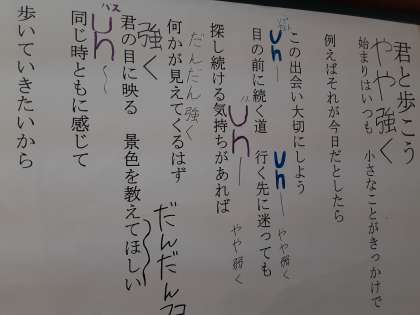 君と歩こう
やや強く
始まりはいつも 小さなことがきっかけで
例えばそれが今日だとしたら
この出会い大切にしよう
Uh
Uh
やや弱く
目の前に続く道 行く先に迷っても
Uh
やや弱く
探し続ける気持ちがあれば
だんだん強く
何かが見えてくるはず
だんだん
強く
君の目に映る 景色を教えてほしい
バス
Uh
同じ時ともに感じて
歩いていきたいから